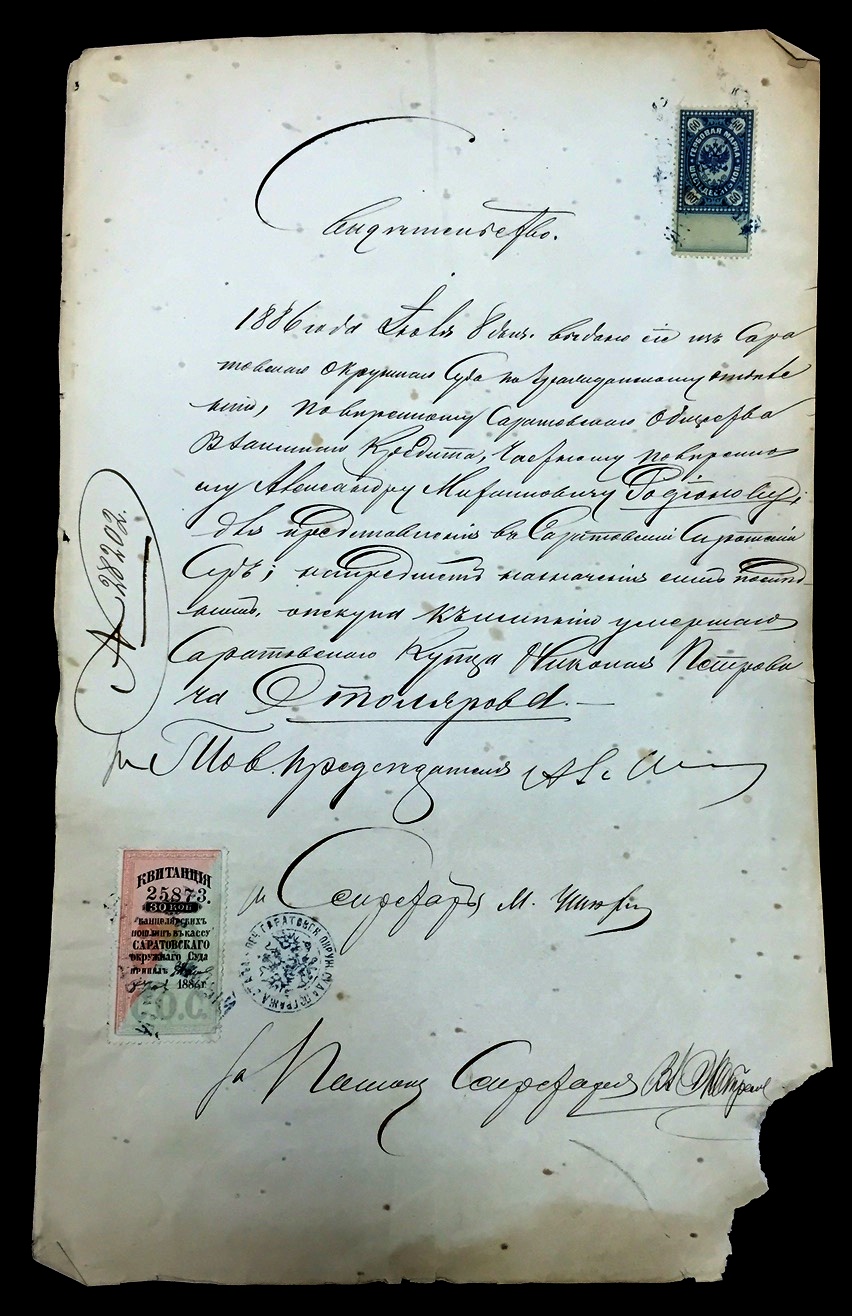 60 60
ГЕРБОВАЯ МАРКА
ШЕСТЬДЕСЯТЪ КОП.
60 60
Свидѣтельство.
1886 года Іюля 8 дня. выдано сіе изъ Сара
товскаго Окружнаго Суда по Гражданскому отдѣле
нію, повѣренному Саратовскаго Общества
Взаимнаго Кредита, Частному повѣренно
му Александру Михайловичу Родіонову,
для представленія въ Саратовскій Сиротскій
Судъ; на предметъ назначенія симъ послѣд
нимъ, опекуна къ имѣнію умершаго
Саратовскаго Купца Николая Петрови
ча Столярова.
№ 28202.
За Тов. Предсѣдателя
за Секретарь М.
КВИТАНЦІЯ
25873.
30 КОП.
канцелярскихъ
пошлинъ въ кассу
САРАТОВСКАГО
окружнаго Суда
принялъ
188 г.
С.О.С.
САРАТОВСК. ОКРУЖ. СУДА ПО ГРАЖД.
за Помощ Секретаря